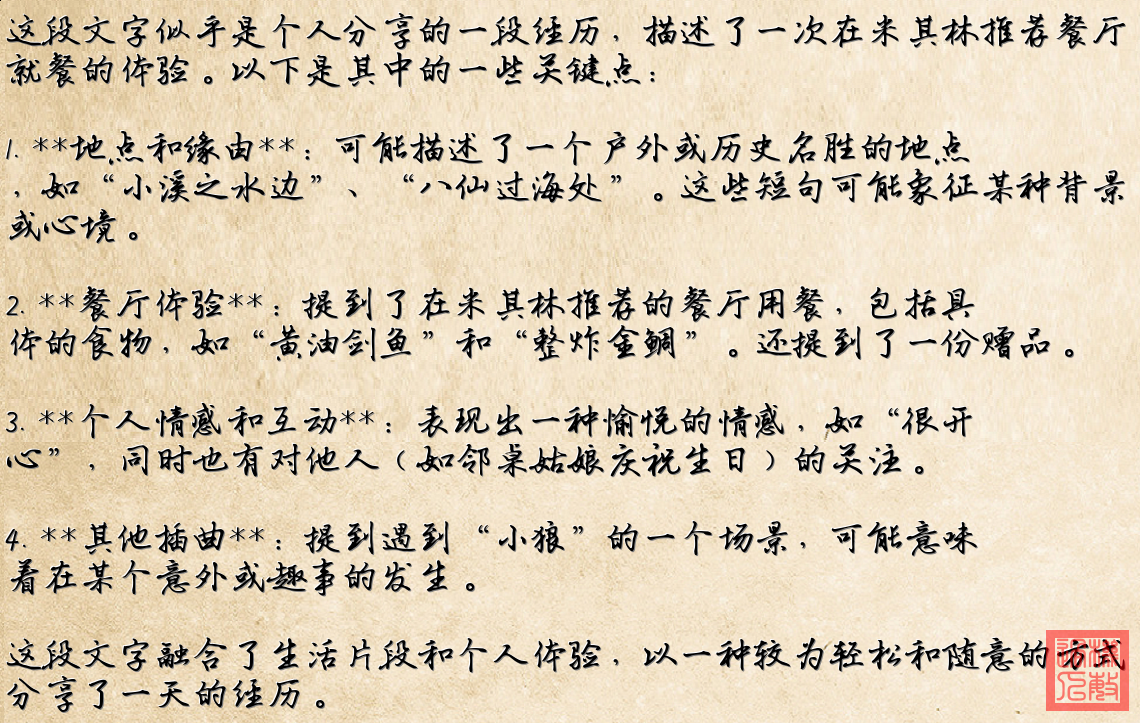 这段文字似乎是个人分享的一段经历，描述了一次在米其林推荐餐厅
就餐的体验。以下是其中的一些关键点：
1. **地点和缘由**：可能描述了一个户外或历史名胜的地点
，如“小溪之水边”、“八仙过海处”。这些短句可能象征某种背景
或心境。
2. **餐厅体验**：提到了在米其林推荐的餐厅用餐，包括具
体的食物，如“黄油剑鱼”和“整炸金鲷”。还提到了一份赠品。
3. **个人情感和互动**：表现出一种愉悦的情感，如“很开
心”，同时也有对他人（如邻桌姑娘庆祝生日）的关注。
4. **其他插曲**：提到遇到“小狼”的一个场景，可能意味
着在某个意外或趣事的发生。
这段文字融合了生活片段和个人体验，以一种较为轻松和随意的方式
分享了一天的经历。